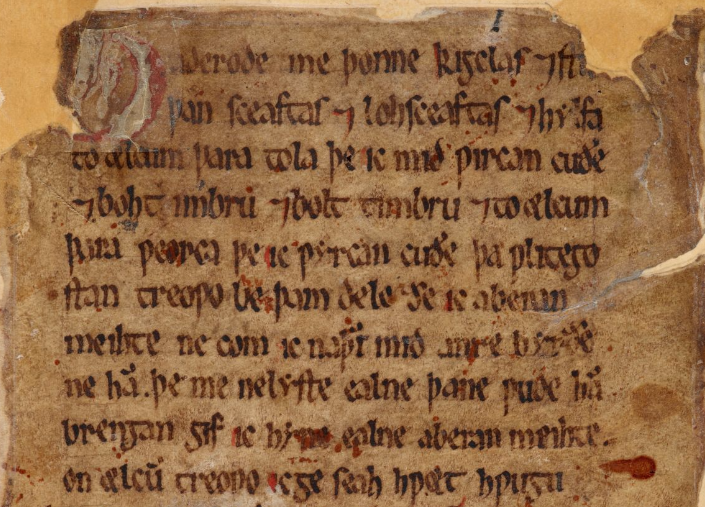 aderode me þonne kigclas ⁊ stu
þan sceaftas ⁊ lohsceaftas ⁊ hylfa
to ælcum þara tola þe ic mid ƿircan cuðe
⁊ boht imbrū ⁊ bolt timbrū ⁊ to ælcum
þara ƿeorca þe ic ƿyrcan cuðe þa ƿlitego
stan treoƿo be þam dele ðe ic aberan
meihte ne com ic naþer mid anre byrðe
ne hā. þe me ne lyste ealne þane ƿude hā
brengan gif ic hyne ealne aberan meihte.
on ælcū treoƿo ic ge seah hƿæt hƿugu